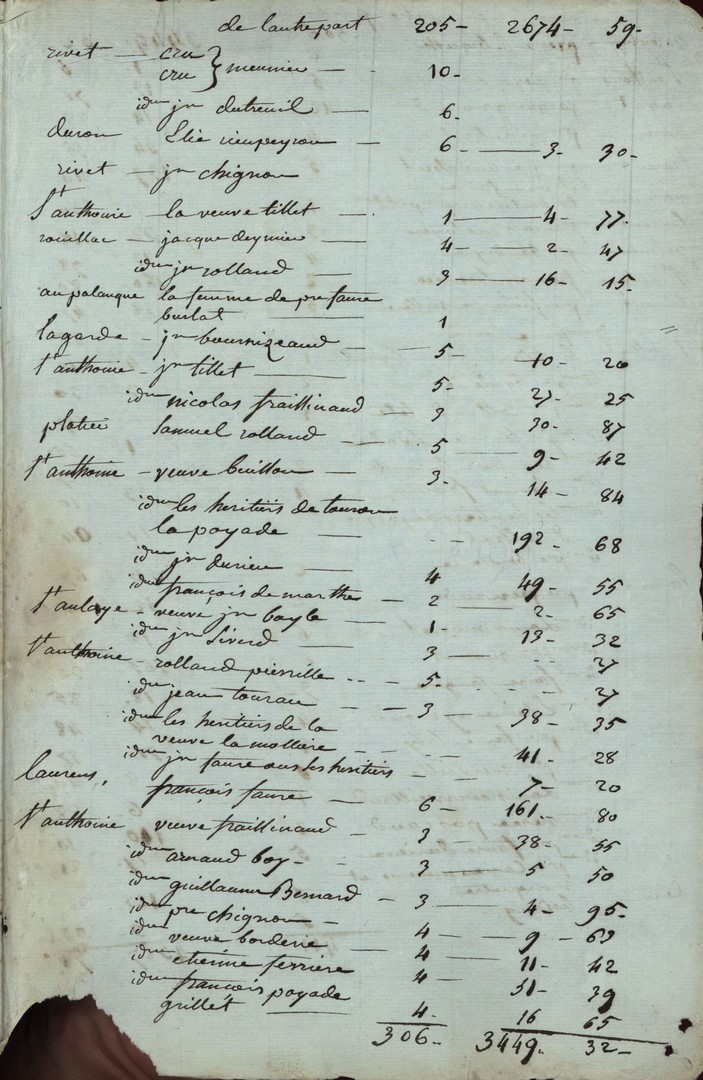 de lautre part 205- 2674- 59-
rivet - cru
cru } meunier - 10-
idem jn dutreuil - 6-
duron Elie rieupeyrou - 6- 3- 30-
rivet - jn chignon
st anthoine - la veuve tillet - 1 - 4- 77-
rouillac - jacque deymier - 4- 2- 47
idem jn rolland - 3 - 16- 15-
au palanque la femme de pre faure
burlat 1
lagarde - jn bournizeaud - 5- 10- 20
st anthoine - jn tillet - 5- 27- 25
idem nicolas fraillinaud - 3 30- 87
platier Samuel rolland - 5 - 9- 42
st anthoine - veuve buillon - 3- 14- 84
idem les heritiers de touron
la poyade - 192- 68
idem jn durieu - 4 49- 55
idem françois de marthe - 2 - 2- 65
st aulaye - veuve jn boyle - 1- 13- 32
idem jn Siverd - 3 - 27
st anthoine - rolland pierrille -- 5- 27
idem jean tourau - 3 - 38- 35
idem les heritiers de la
veuve la mottiere - 41- 28
idem jn faure ous les heritiers - 7- 20
laurens, françois faure - 6- 161- 80
st anthoine veuve fraillinaud - 3 38- 55
idem arnaud boy - 3 - 5 50
idem guillaume Bernard - 3 - 4- 95-
idem pre chignon -
idem veuve borderie - 4 - 9 - 69
idem etienne ferriere 4 - 11- 42
idem françois poyade 4 51- 39
grillet - 4- 16 65
306- 3449- 32-